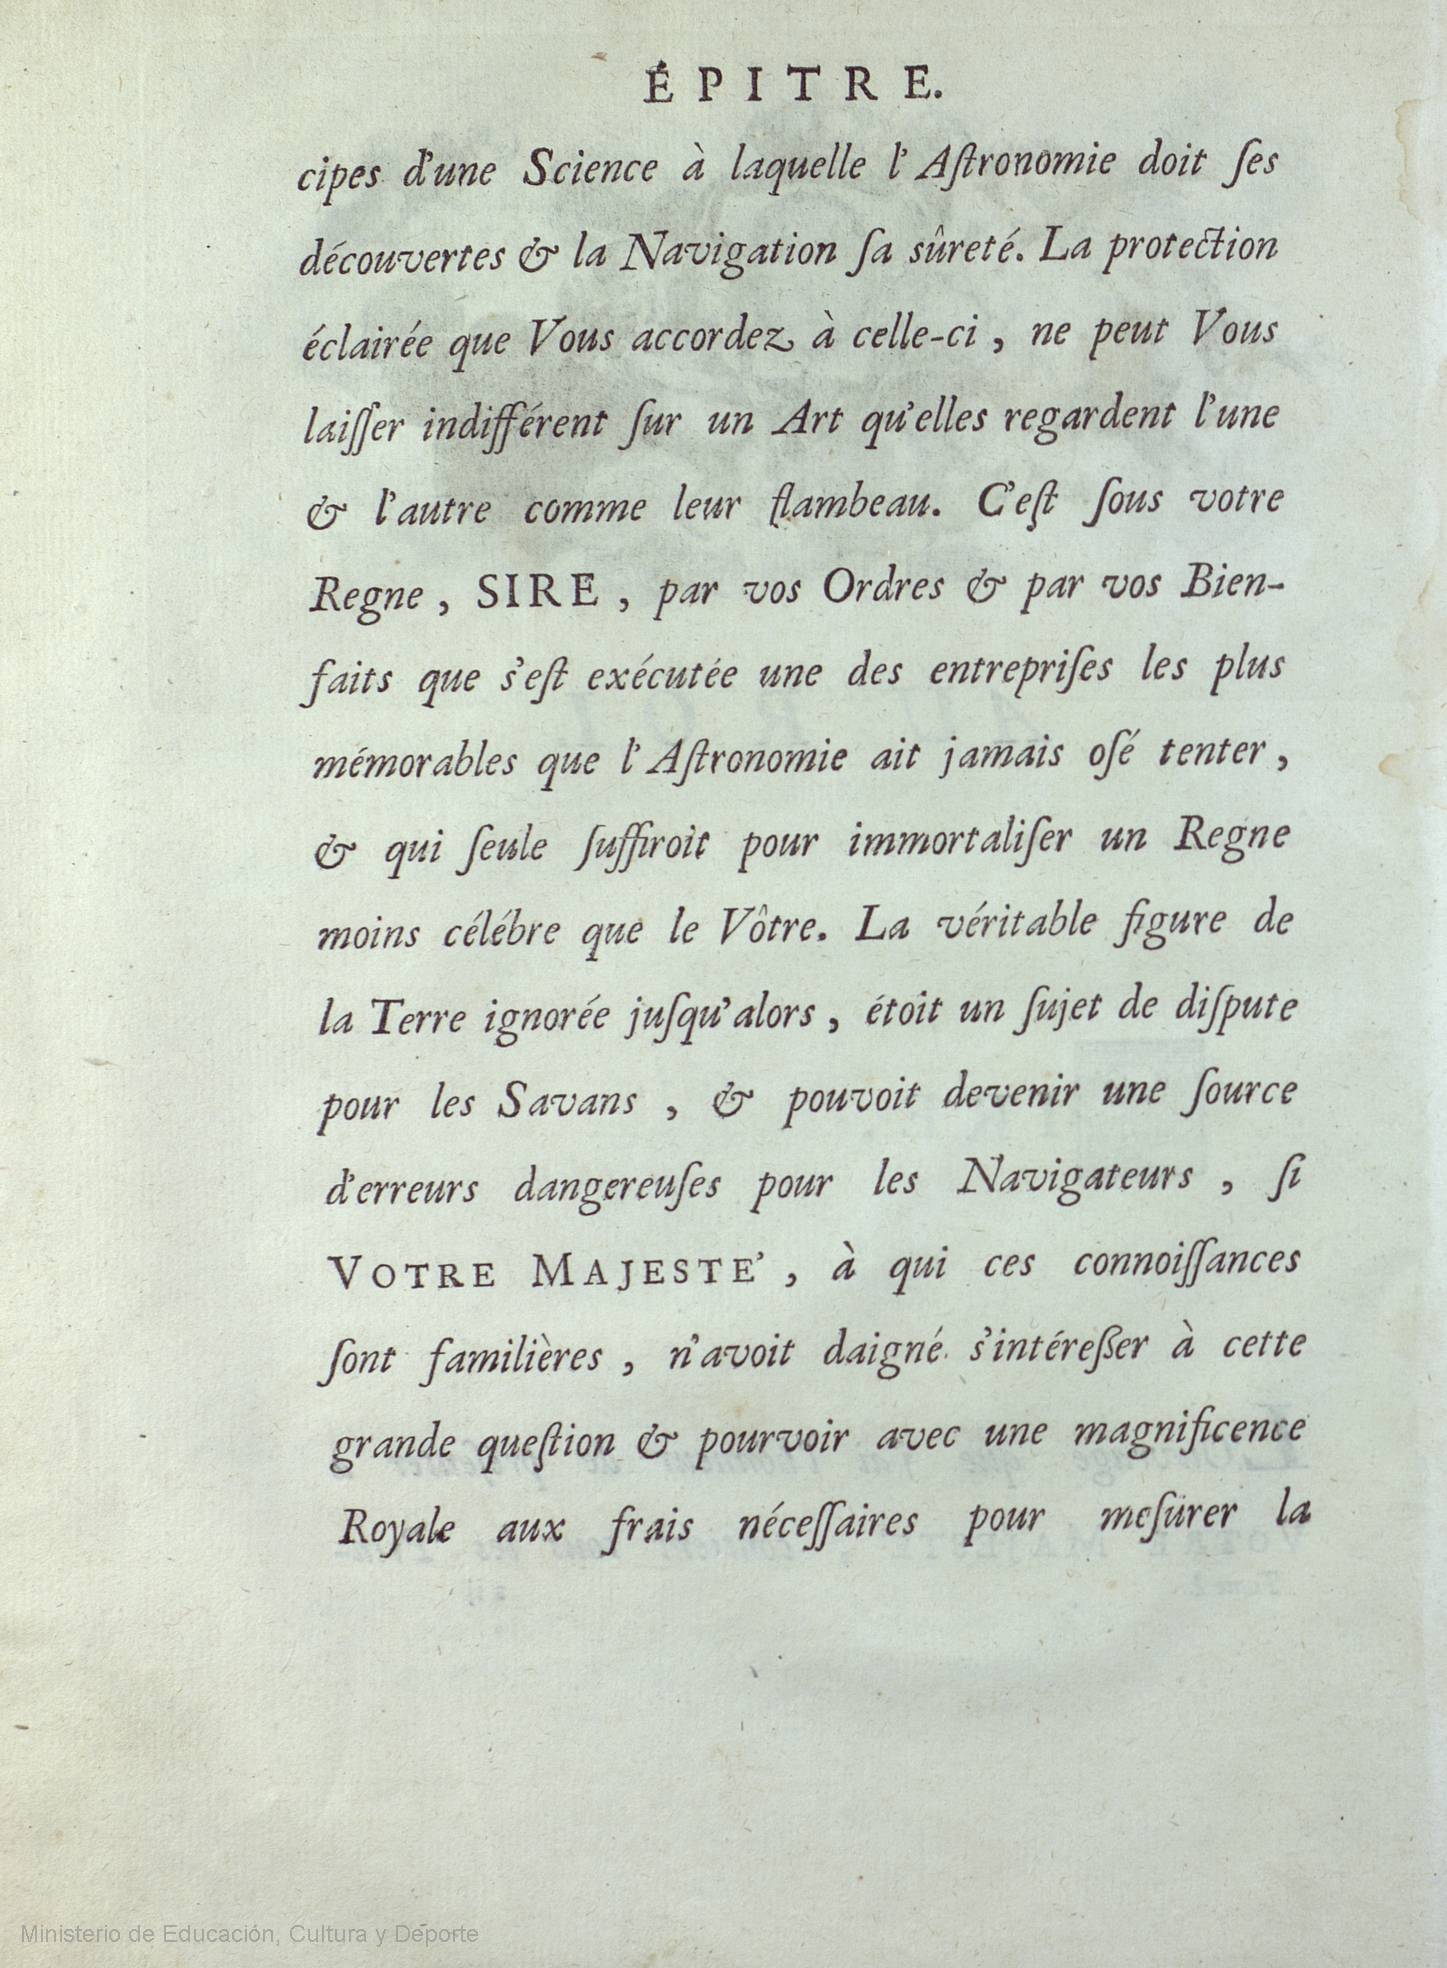 ÉPITRE.
cipes d'une Science à laquelle l'Aſtronomie doit ſes
découvertes & la Navigation ſa sûreté. La protection
éclairée que Vous accordez à celle-ci, ne peut Vous
laiſſer indifférent ſur un Art qu'elles regardent l'une
& l'autre comme leur flambeau. C'eſt ſous votre
Regne, SIRE, par vos Ordres & par vos Bien-
faits que s'eſt exécutée une des entrepriſes les plus
mémorables que l'Aſtronomie ait jamais oſé tenter,
& qui ſeule ſuffiroit pour immortaliſer un Regne
moins célébre que le Vôtre. La véritable figure de
la Terre ignorée juſqu'alors, étoit un ſujet de diſpute
pour les Savans, & pouvoit devenir une ſource
d'erreurs dangereuſes pour les Navigateurs, ſi
VOTRE MAJESTE', à qui ces connoiſſances
ſont familières, n'avoit daigné s'intéreßer à cette
grande queſtion & pourvoir avec une magnificence
Royale aux frais néceſſaires pour meſurer la
Ministerio de Educación, Cultura y Deporte